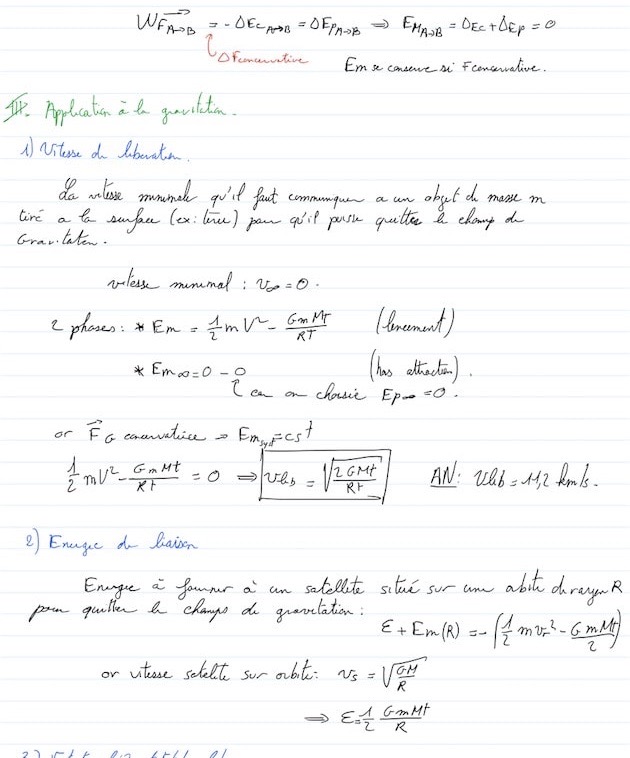 W F A→B = -ΔEc A→B = ΔEp A→B ⇒ Em A→B = ΔEc + ΔEp = 0
Δ Fconservative
Em se conserve si F conservative.
III. Application à la gravitation.
1) Vitesse de libération.
La vitesse minimale qu'il faut communiquer a un objet de masse m
tiré a la surface (ex: terre) pour qu'il puisse quitter le champ de
Gravitation.
vitesse minimal : v∞ = 0.
2 phases : * Em = 1/2 m V² - GmMt/RT (lancement)
* Em∞ = 0 - 0 (hors attraction).
car on choisie Ep∞ = 0.
or F⃗G conservatrice ⇒ Em syst = cst
1/2 mV² - GmMt/Rt = 0 ⇒ Vlib = √(2GMt/Rt) AN: Vlib = 11,2 km/s.
2) Energie de liaison
Energie à fournir à un satellite situé sur une orbite de rayon R
pour quitter le champs de gravitation :
ε + Em(R) = - (1/2 m vr² - GmMt/2)
or vitesse satelite sur orbite : vs = √(GM/R)
⇒ ε = 1/2 GmMt/R